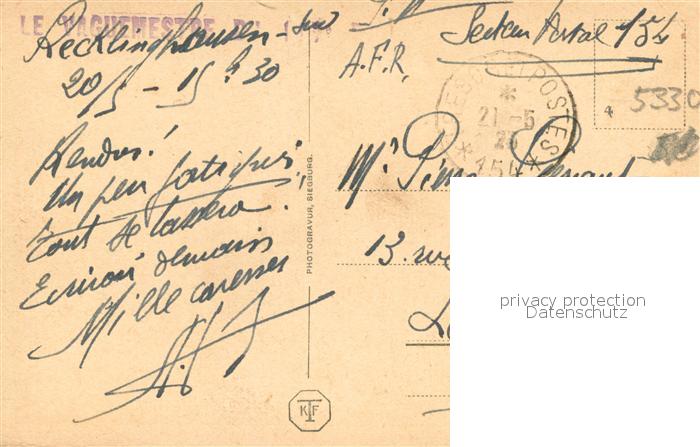 LE VAGUEMESTRE
Recklinghausen - Sud
20/5 - 15 h 30
Rendus!
Un peu fatigués
tout se tassera!
Ecrirai demain
Mille caresses
PHOTOGRAVUR, SIEGBURG.
KTF
Secteur Postal 154
A.F.R.
POSTES
21-5
23
*154*
5330
Mr Pierre
13. rue
privacy protection
Datenschutz